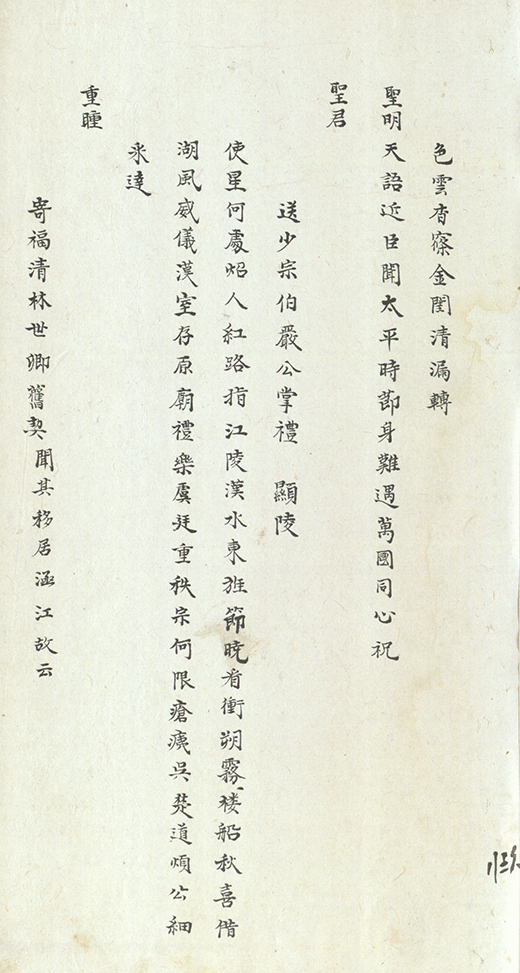 色雲杳靄金閨清漏轉
聖明天語近臣聞太平時節身難遇萬國同心祝
聖君
送少宗伯嚴公掌禮　顯陵
使星何處炤人紅路指江陵漢水東旌節曉看衝朔霧樓船秋喜借
湖風威儀漢室存原廟禮樂虞廷重秩宗何限瘡痍吳楚道煩公細
來達
重瞳
寄福清林世卿舊契聞其移居涵江故云